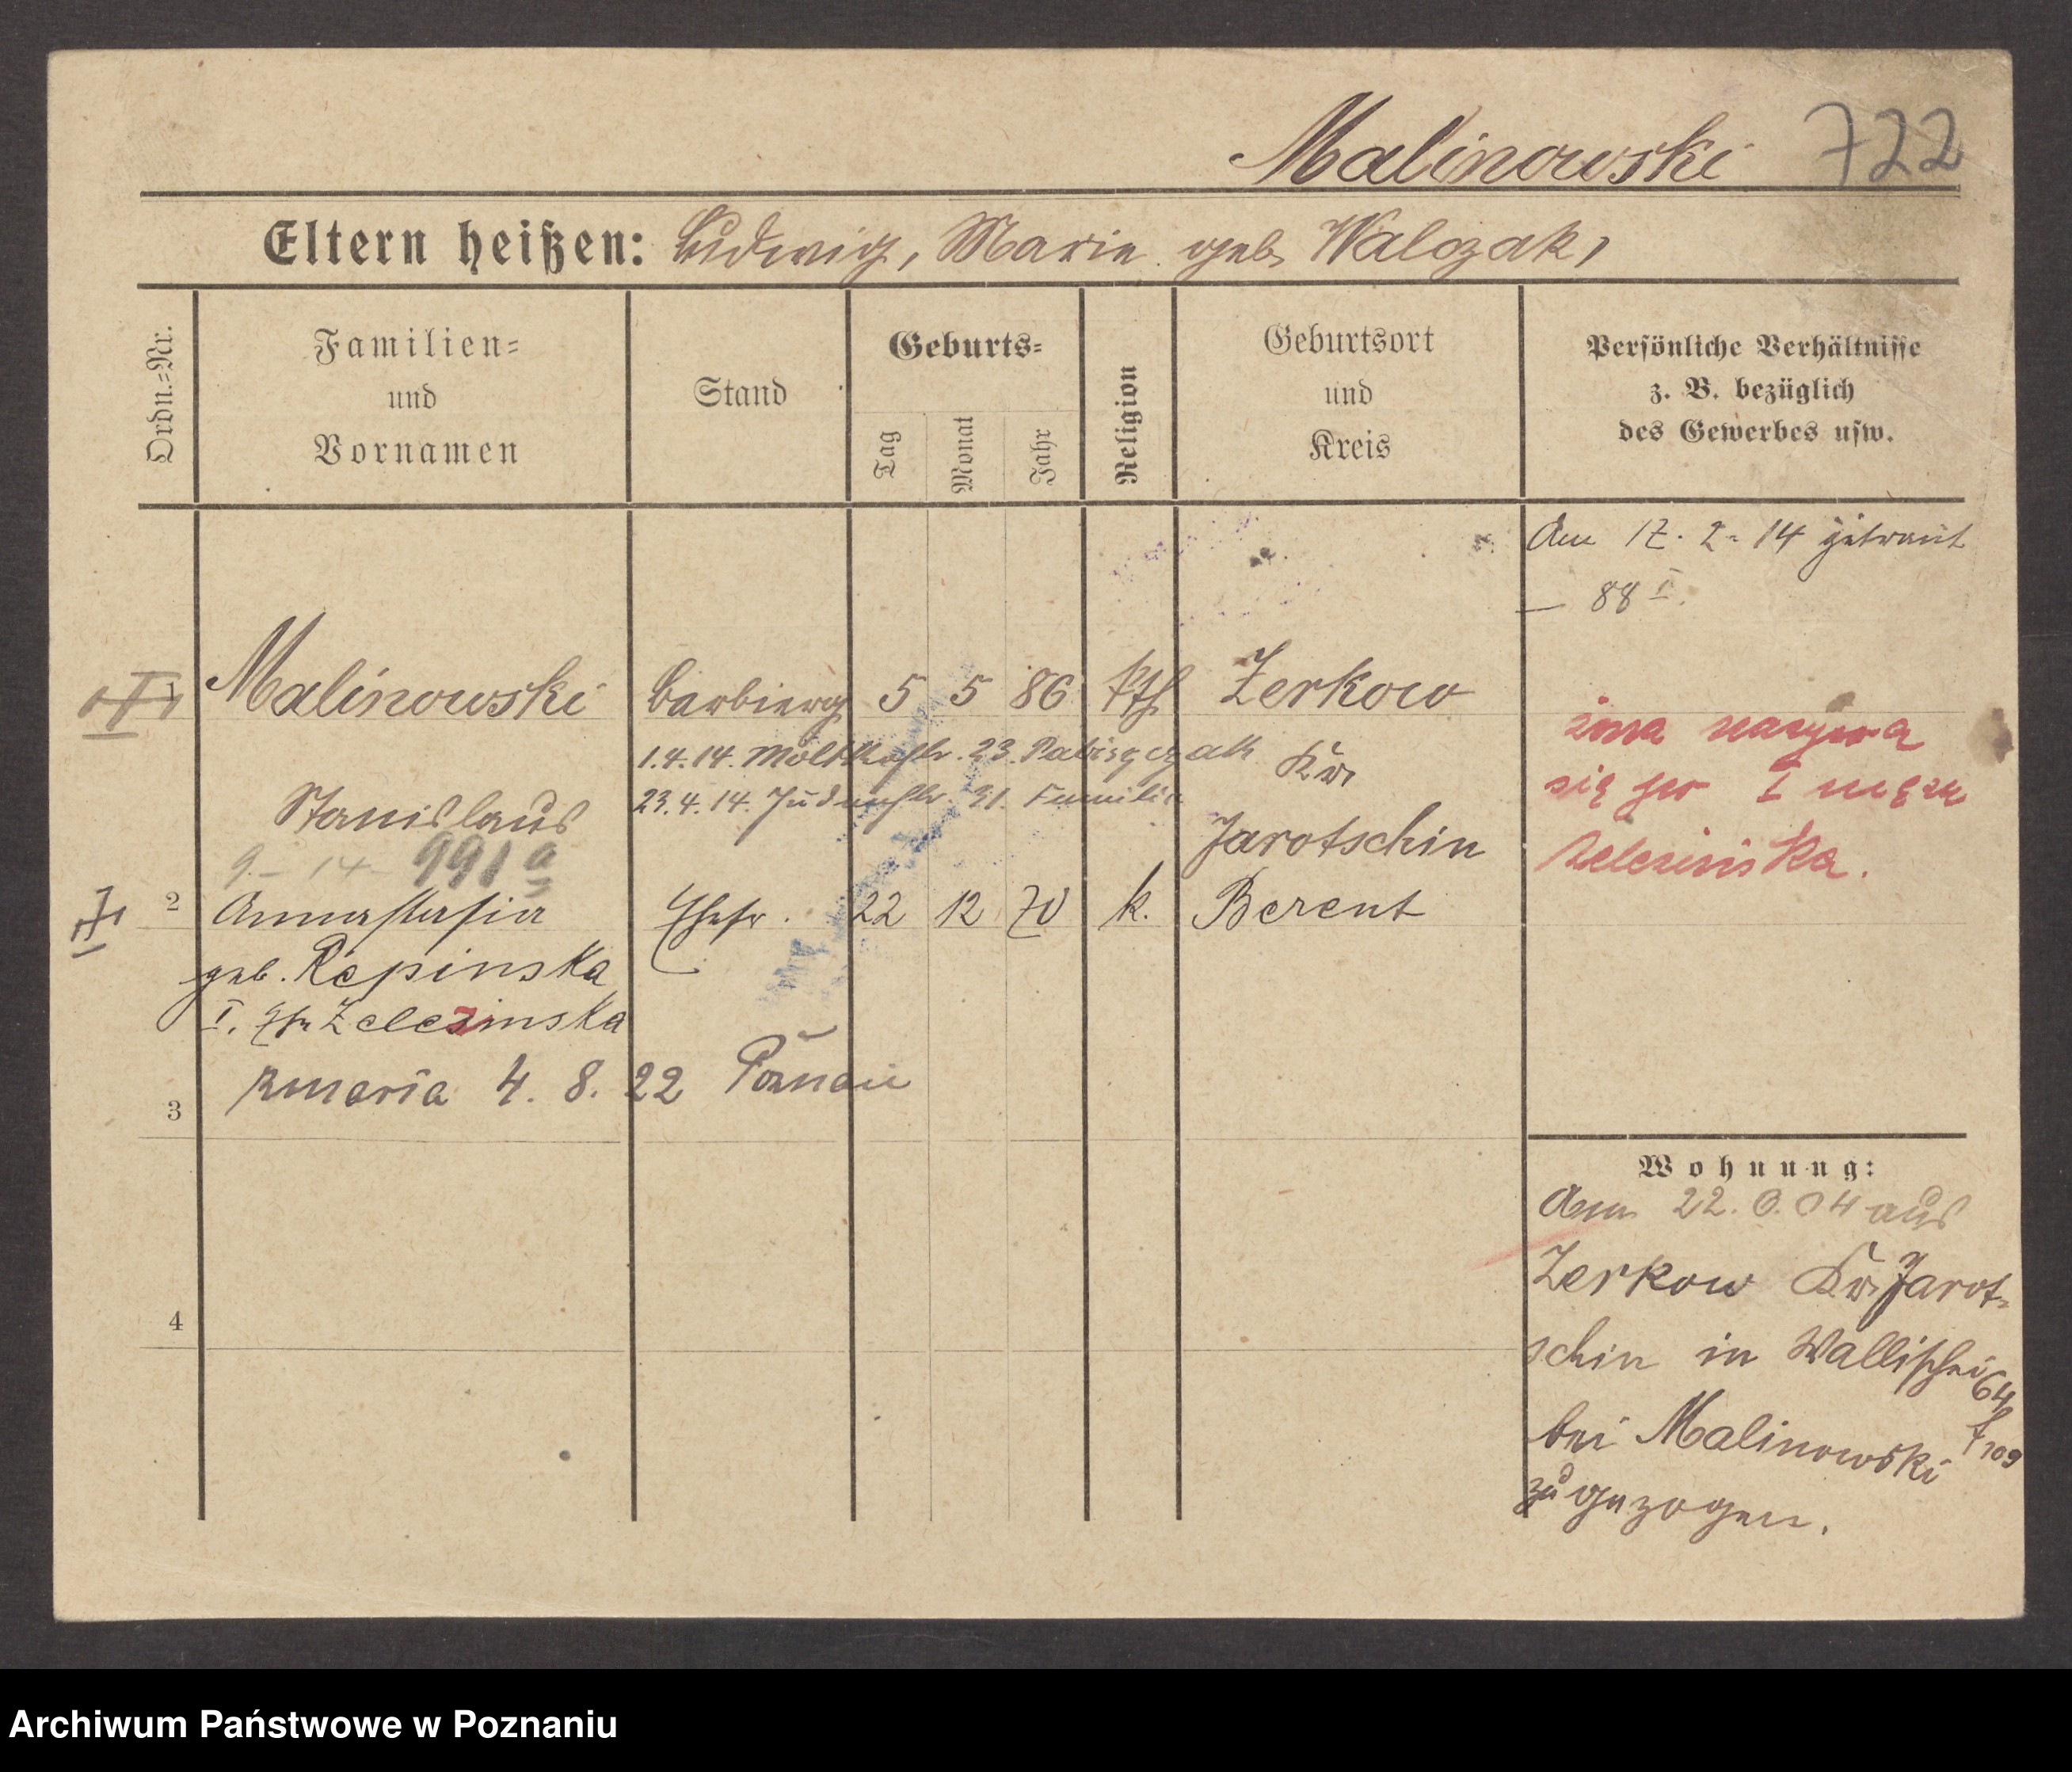 Malinowski 722
Eltern heißen: Ludwig, Marie geb. Walczak,
Ordn.=Nr.
Familien=
und
Vornamen
Stand
Geburts=
Tag
Monat
Jahr
Religion
Geburtsort
und
Kreis
Persönliche Verhältnisse
z. B. bezüglich
des Gewerbes usw.
Am 17. 2. 14 getraut
— 88 I.
1 Malinowski Barbierg 5 5 86 kth Zerkow
1.4.14. Moltkestr. 23.
Kr.
Stanislaus
23.4.14. Judenstr. 31. Familie
Jarotschin
9 - 14 991a
2 Annastasia Ehefr. 22 12 70 k. Berent
geb. Repinska
I. Zelezinska
żona nazywa
się po I mężu
Zelezinska.
3 Maria 4. 8. 22 Poznań
4
Wohnung:
Am 22. 04 aus
Zerkow Kr. Jarot-
schin in Wallischei 64
bei Malinowski
zugezogen.
Archiwum Państwowe w Poznaniu